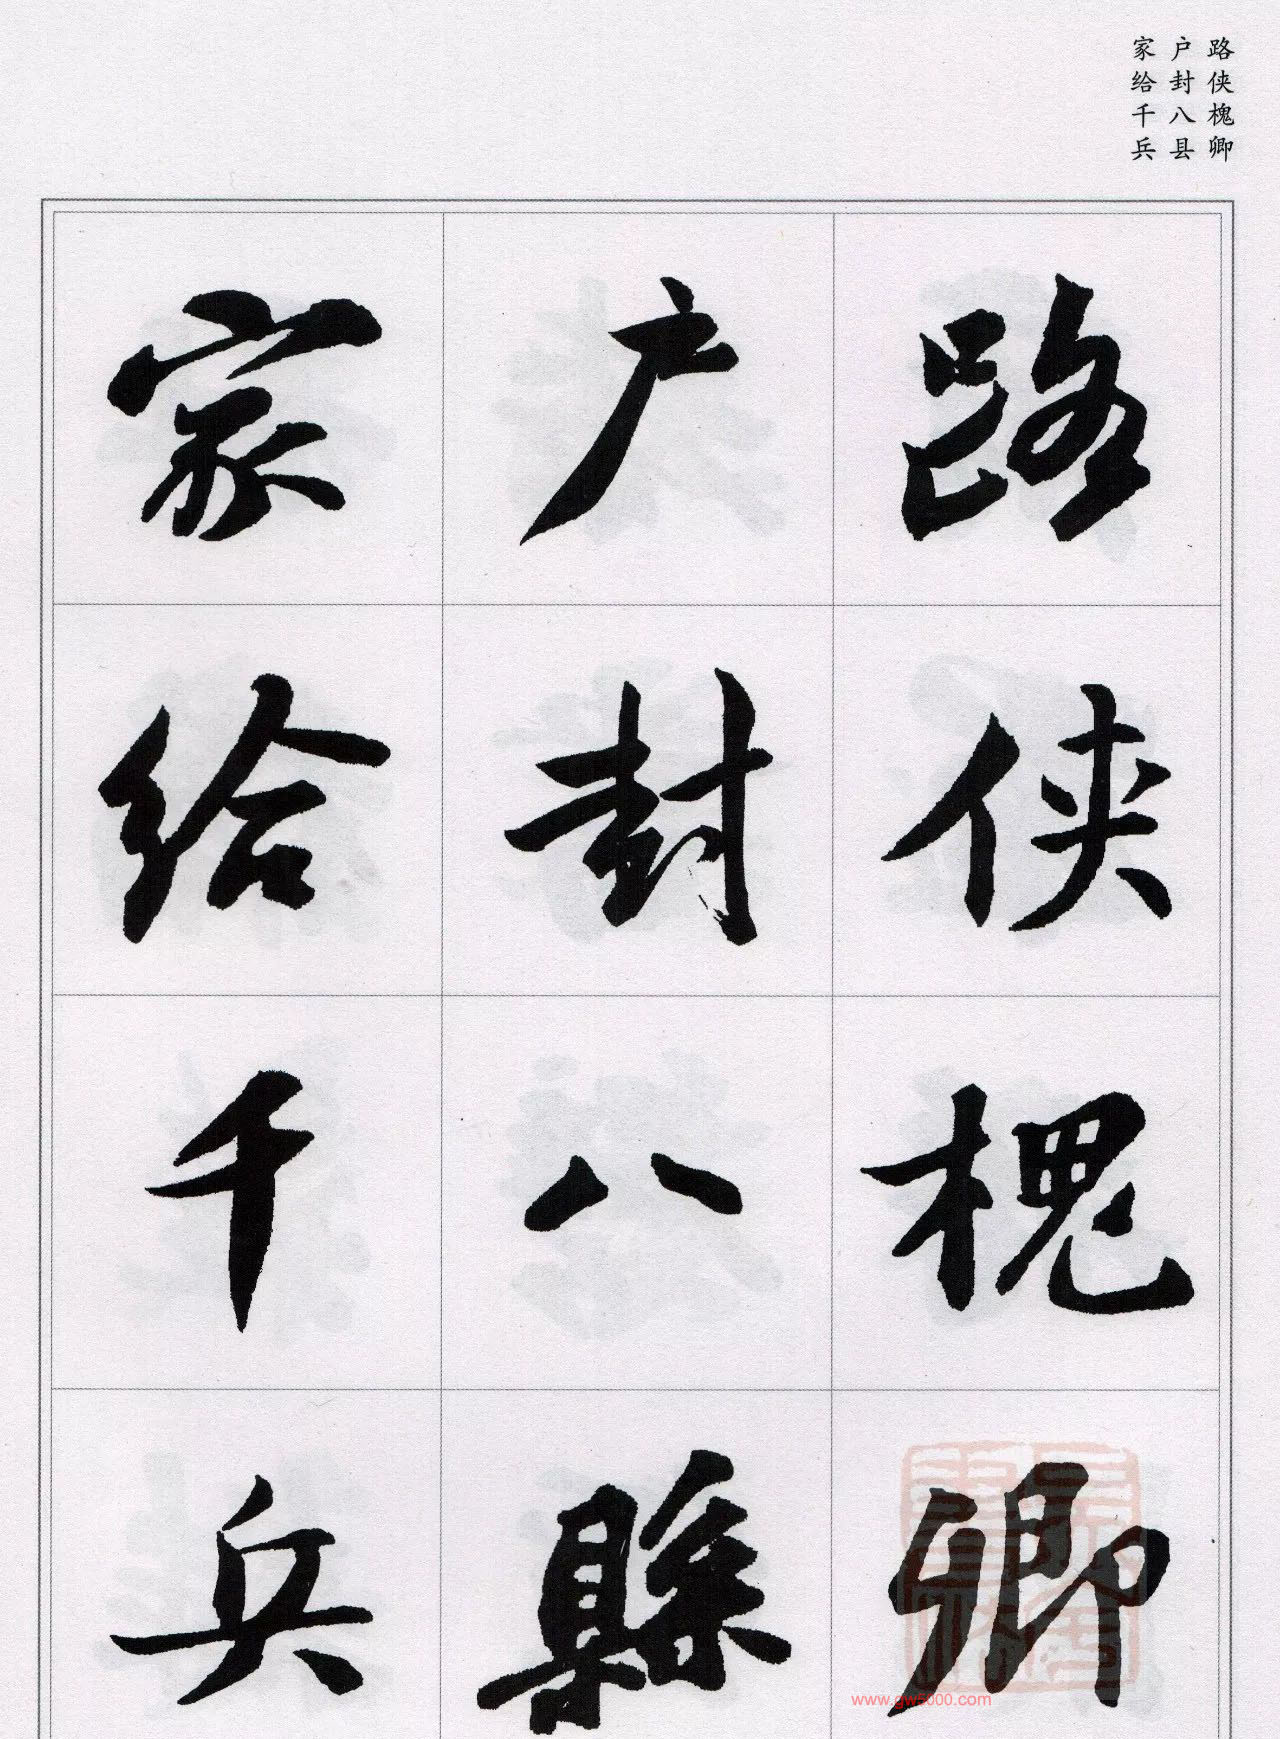 路侠槐卿
户封八县
家给千兵
路侠槐卿
户封八縣
家给千兵
www.gw5000.com